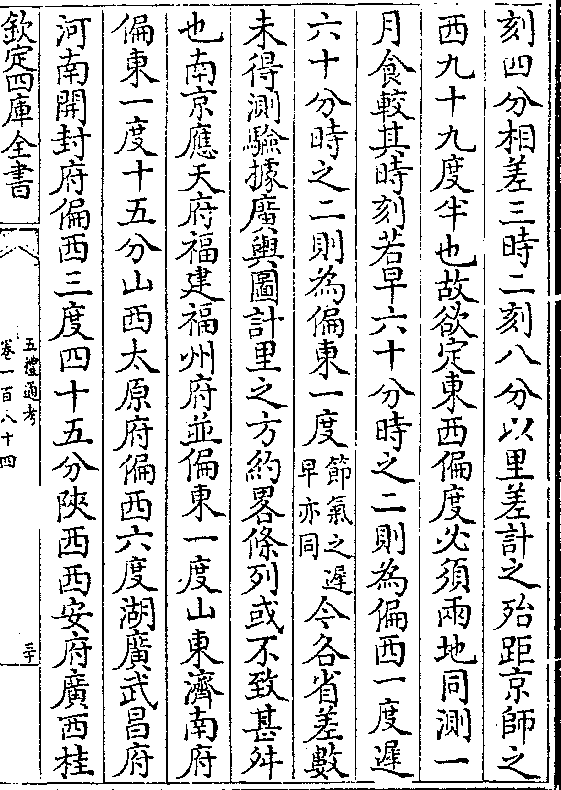 刻四分相差三時二刻八分以里差計之殆距京師之
西九十九度半也故欲定東西偏度必須兩地同測一
月食較其時刻若早六十分時之二則為偏西一度遲
六十分時之二則為偏東一度節氣之遲早亦同今各省差數
未得測驗據廣輿圖計里之方約畧條列或不致甚舛
也南京應天府福建福州府並偏東一度山東濟南府
偏東一度十五分山西太原府偏西六度湖廣武昌府
河南開封府偏西三度四十五分陜西西安府廣西桂
欽定四庫全書
五禮通考
卷一百八十四
二十